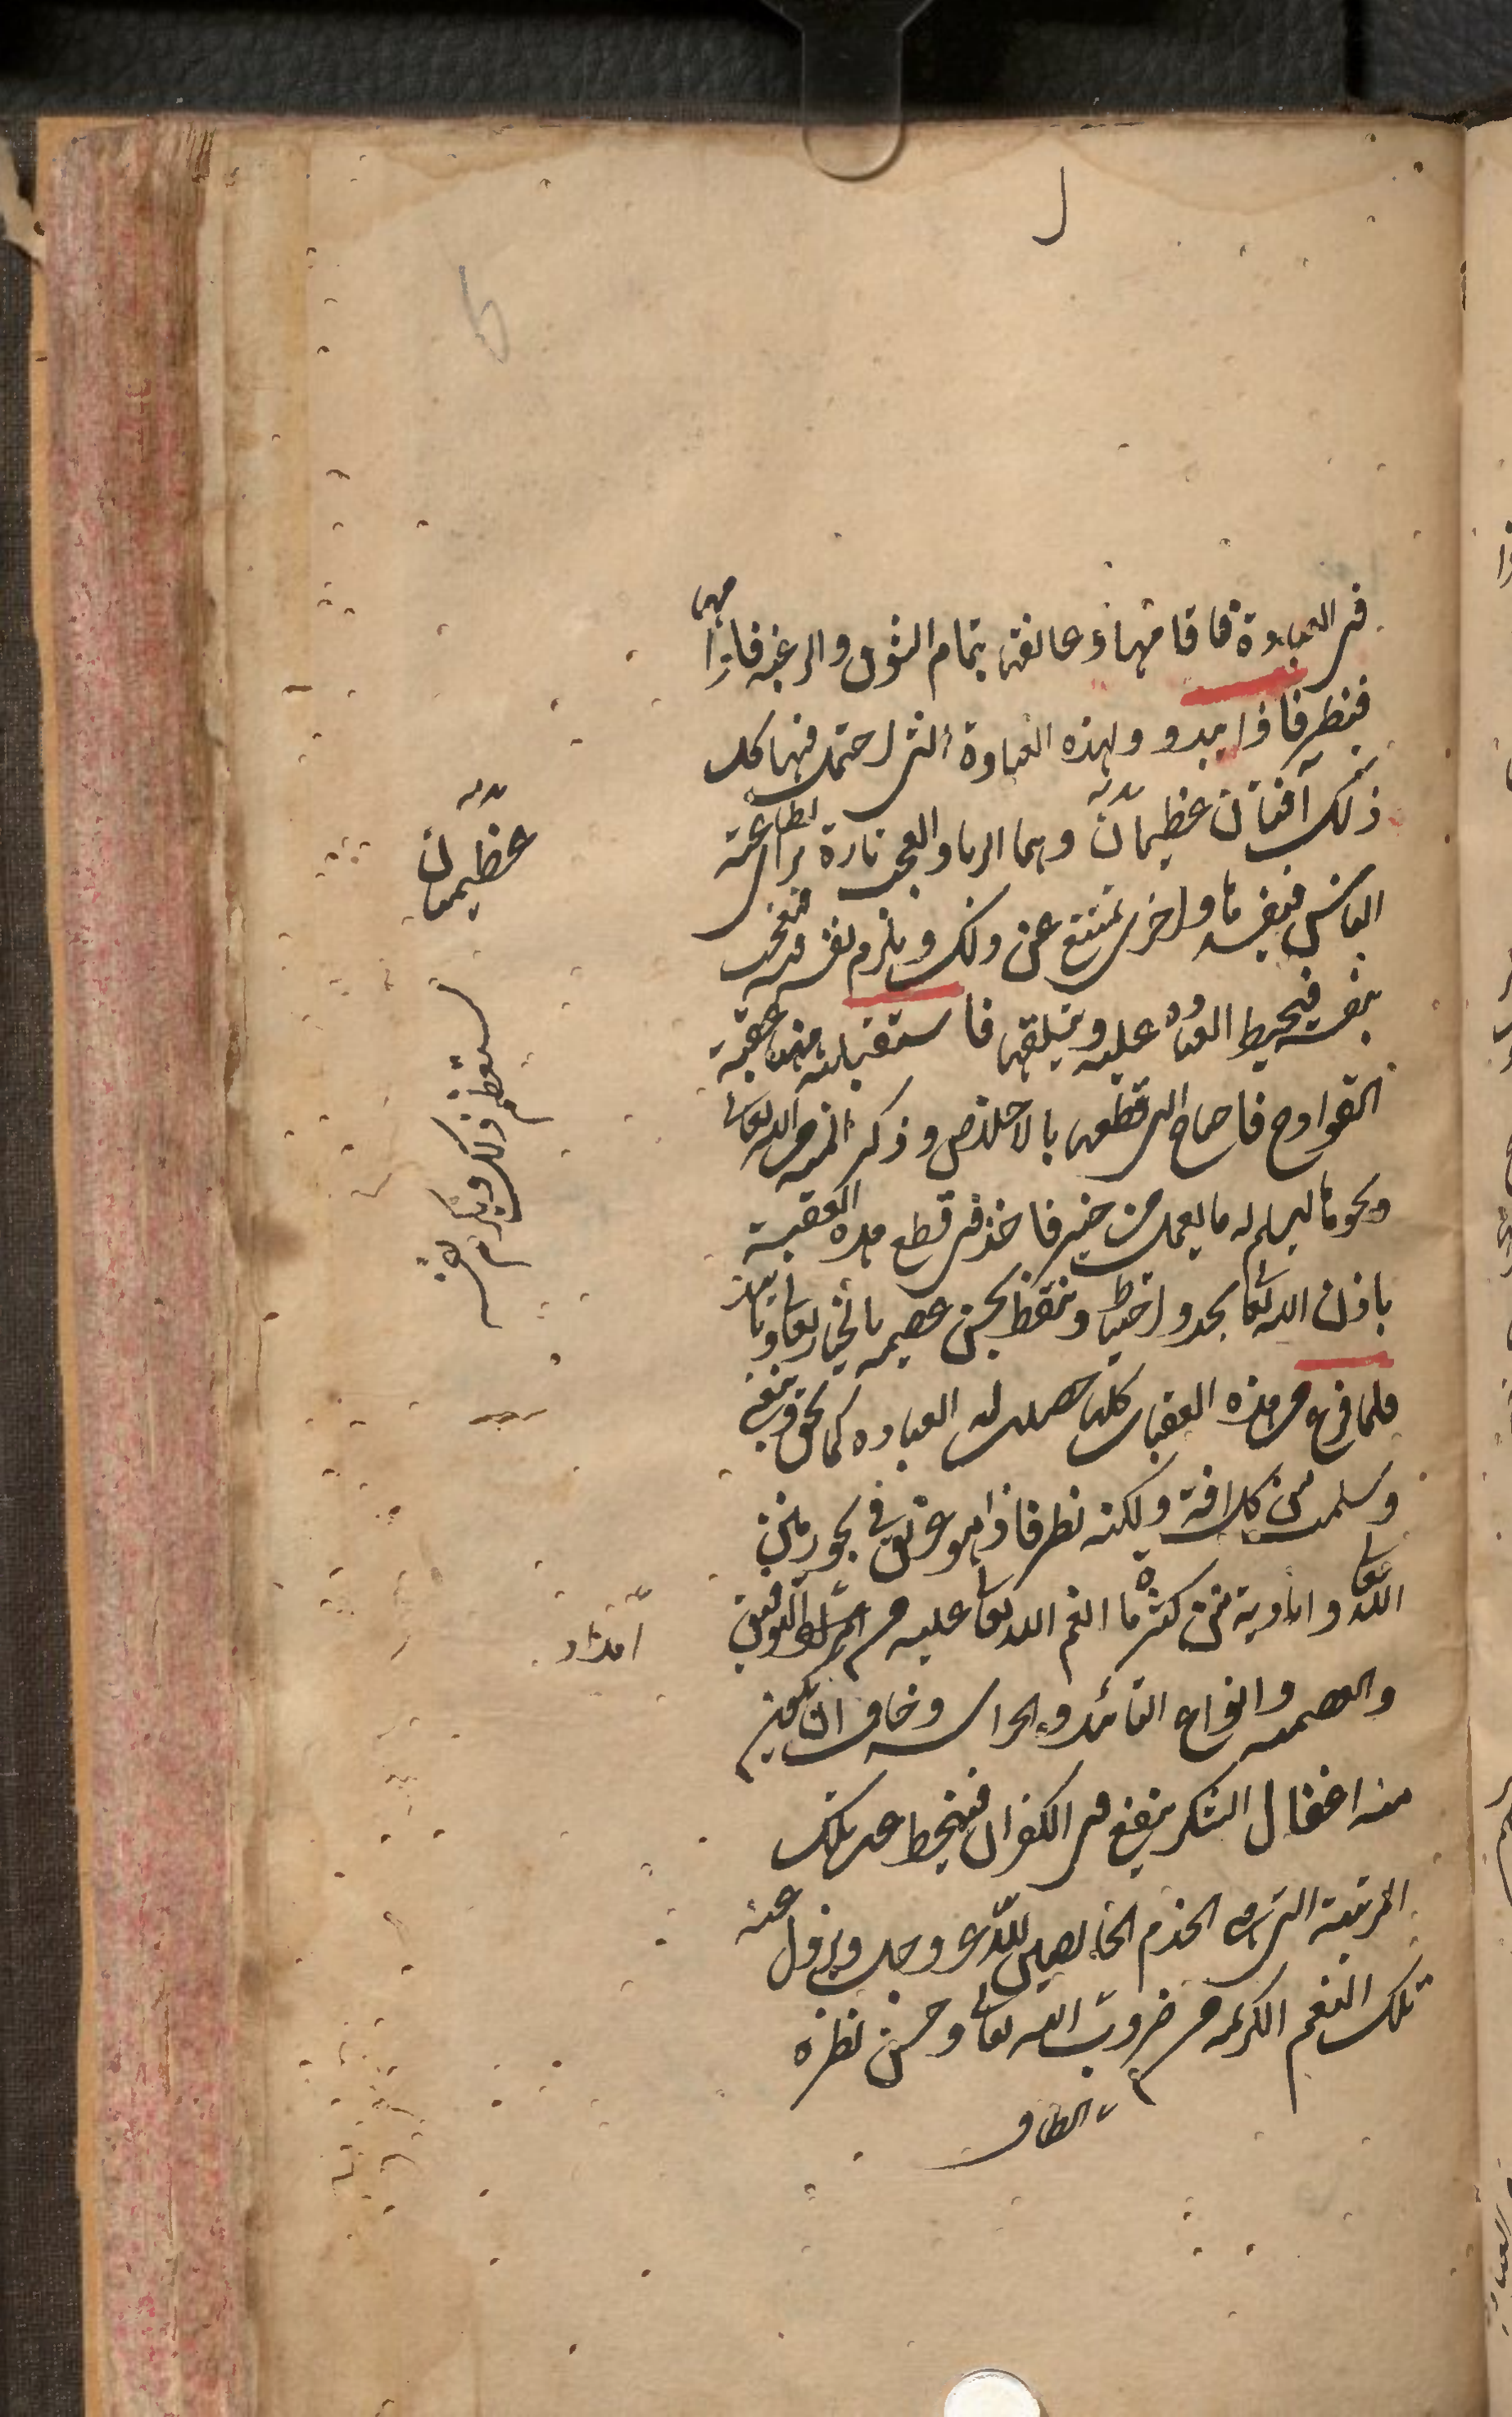 في العبادة فاقامها وعانقها بتمام الشوق والرغبة فاراد منها
فنظر فاذا يبدو ولهذه العبادة التى احتمل فيها كل
ذلك آفتان عظيمان وهما الريا والعجب تارة يراءى لطاعته
الناس فيفسدها واخرى يمتنع عن ذلك ويلزم نفسه فيعجب
بنفسه فيحبط العبادة عليه ويتلفها فاستقبلته منها عقبة
القوادح فاحتاج الى قطعها بالاخلاص وذكر المنة لله تعالى
ونحوها ليسلم له ما يعمل من خير فاخذ في قطع هذه العقبة
باذن الله تعالى بجد واحتياط وتيقظ بحسن عصمة الجبار تعالى وتاييده
فلما فرغ من هذه العقبات كلها حصلت له العبادة كما يحق وينبغي
وسلمت من كل افة ولكنه نظر فاذا هو غريق في بحور منن
الله تعالى واياديه من كثرة ما انعم الله تعالى عليه من امداد التوفيق
والعصمة وانواع التائيد والحراسة وخاف ان يكون
منه اغفال الشكر فيقع في الكفران فينحط عن تلك
المرتبة التى هى الخدم الخالصين لله عز وجل ويزول عنه
تلك النعم الكريمة من ضروب الله تعالى وحسن نظره
الطاف
عظيمان
يستعظم ذلك ويكرم نفسه
امداد